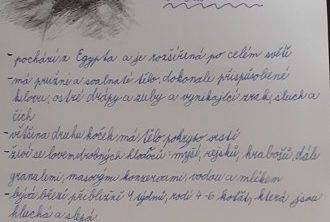 - pochází z Egypta a je rozšířená po celém světě
- má pružné a svalnaté tělo, dokonale přispůsobené
lovu, ostré drápy a zuby a vynikající zrak, sluch a
čich
- většina druhu koček má tělo pokryto srstí
- živí se lovem drobných hlodavců: myší, rejsků, hrabošů, dále
granulemi, masovými konzervami, vodou a mlékem
- bývá březí přibližně 9 týdnů, rodí 4-6 koťat, která jsou
hluchá a slepá